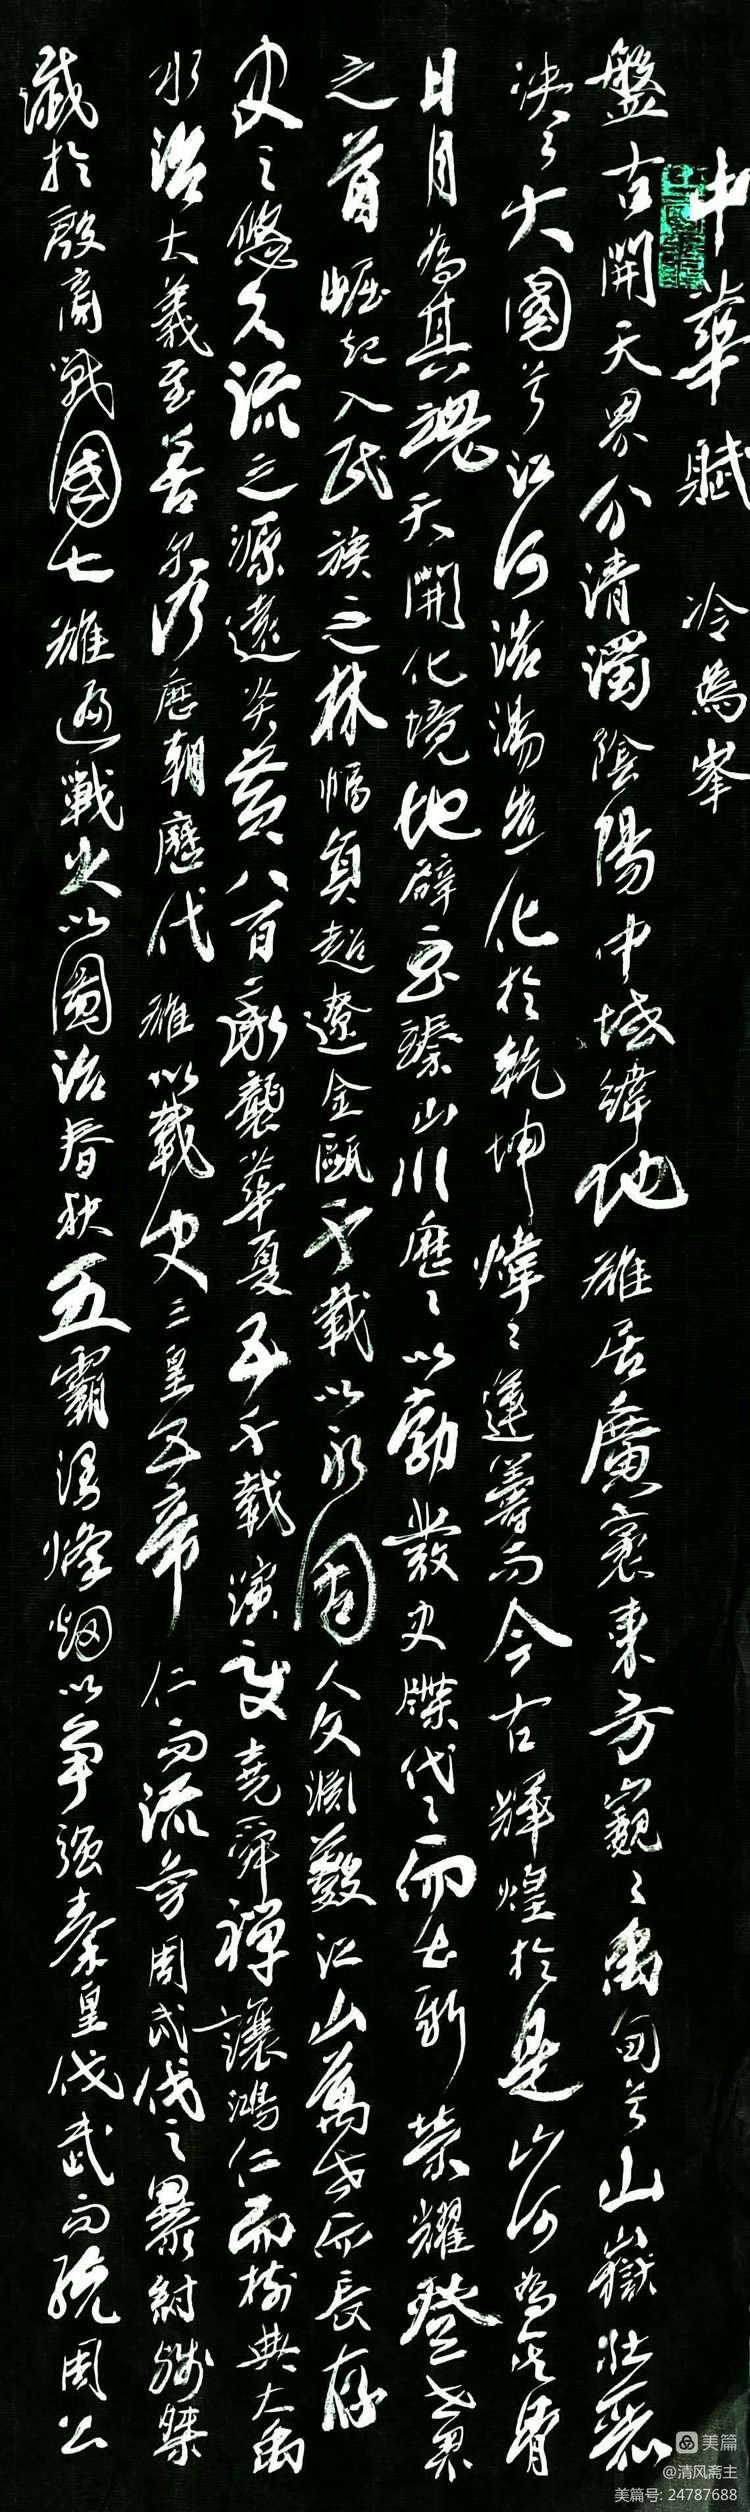 中華賦 冷為峯
盤古開天界分清濁陰陽中域緯地雄居廣袤東方巍々禹甸兮山嶽壯麗
泱々大國兮江河浩蕩造化於乾坤煒々運籌而今古輝煌於是山河為其骨
日月為其魂天開化境地辟玉臻山川歷々以勃發史牒代々而出新榮耀登世界
之首崛起入民族之林幅員超遼金甌千載以永固人文淵藪江山萬古而長存
史之悠久流之源遠炎黃八百承襲華夏五千載演變堯舜禪讓鴻仁而樹典大禹
水治大義至善尔乃歷朝歷代雄以載史三皇五帝仁而流芳周武伐之暴紂殘桀
滅於殷商戰國七雄逐戰火以圖治春秋五霸濁烽烟以爭强秦皇伐武而統周公
美篇
@清风斋主
美篇号: 24787688